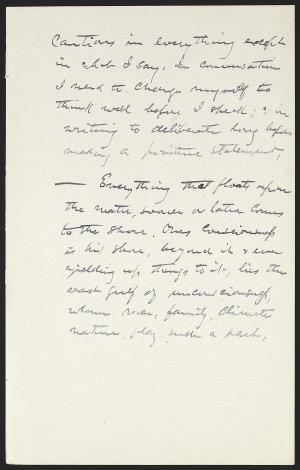 Cautious in everything except
in what I say. In conversation
I need to charge myself to
think well before I speak; & in
writing to deliberate long before
making a positive statement.
— Everything that floats upon
the water, sooner or later comes
to the shore. Ones consciousness
is his shore, beyond it & ever
yielding up things to it, lies the
vast gulf of unconsciousness,
where race, family, climate
nature, play such a part.